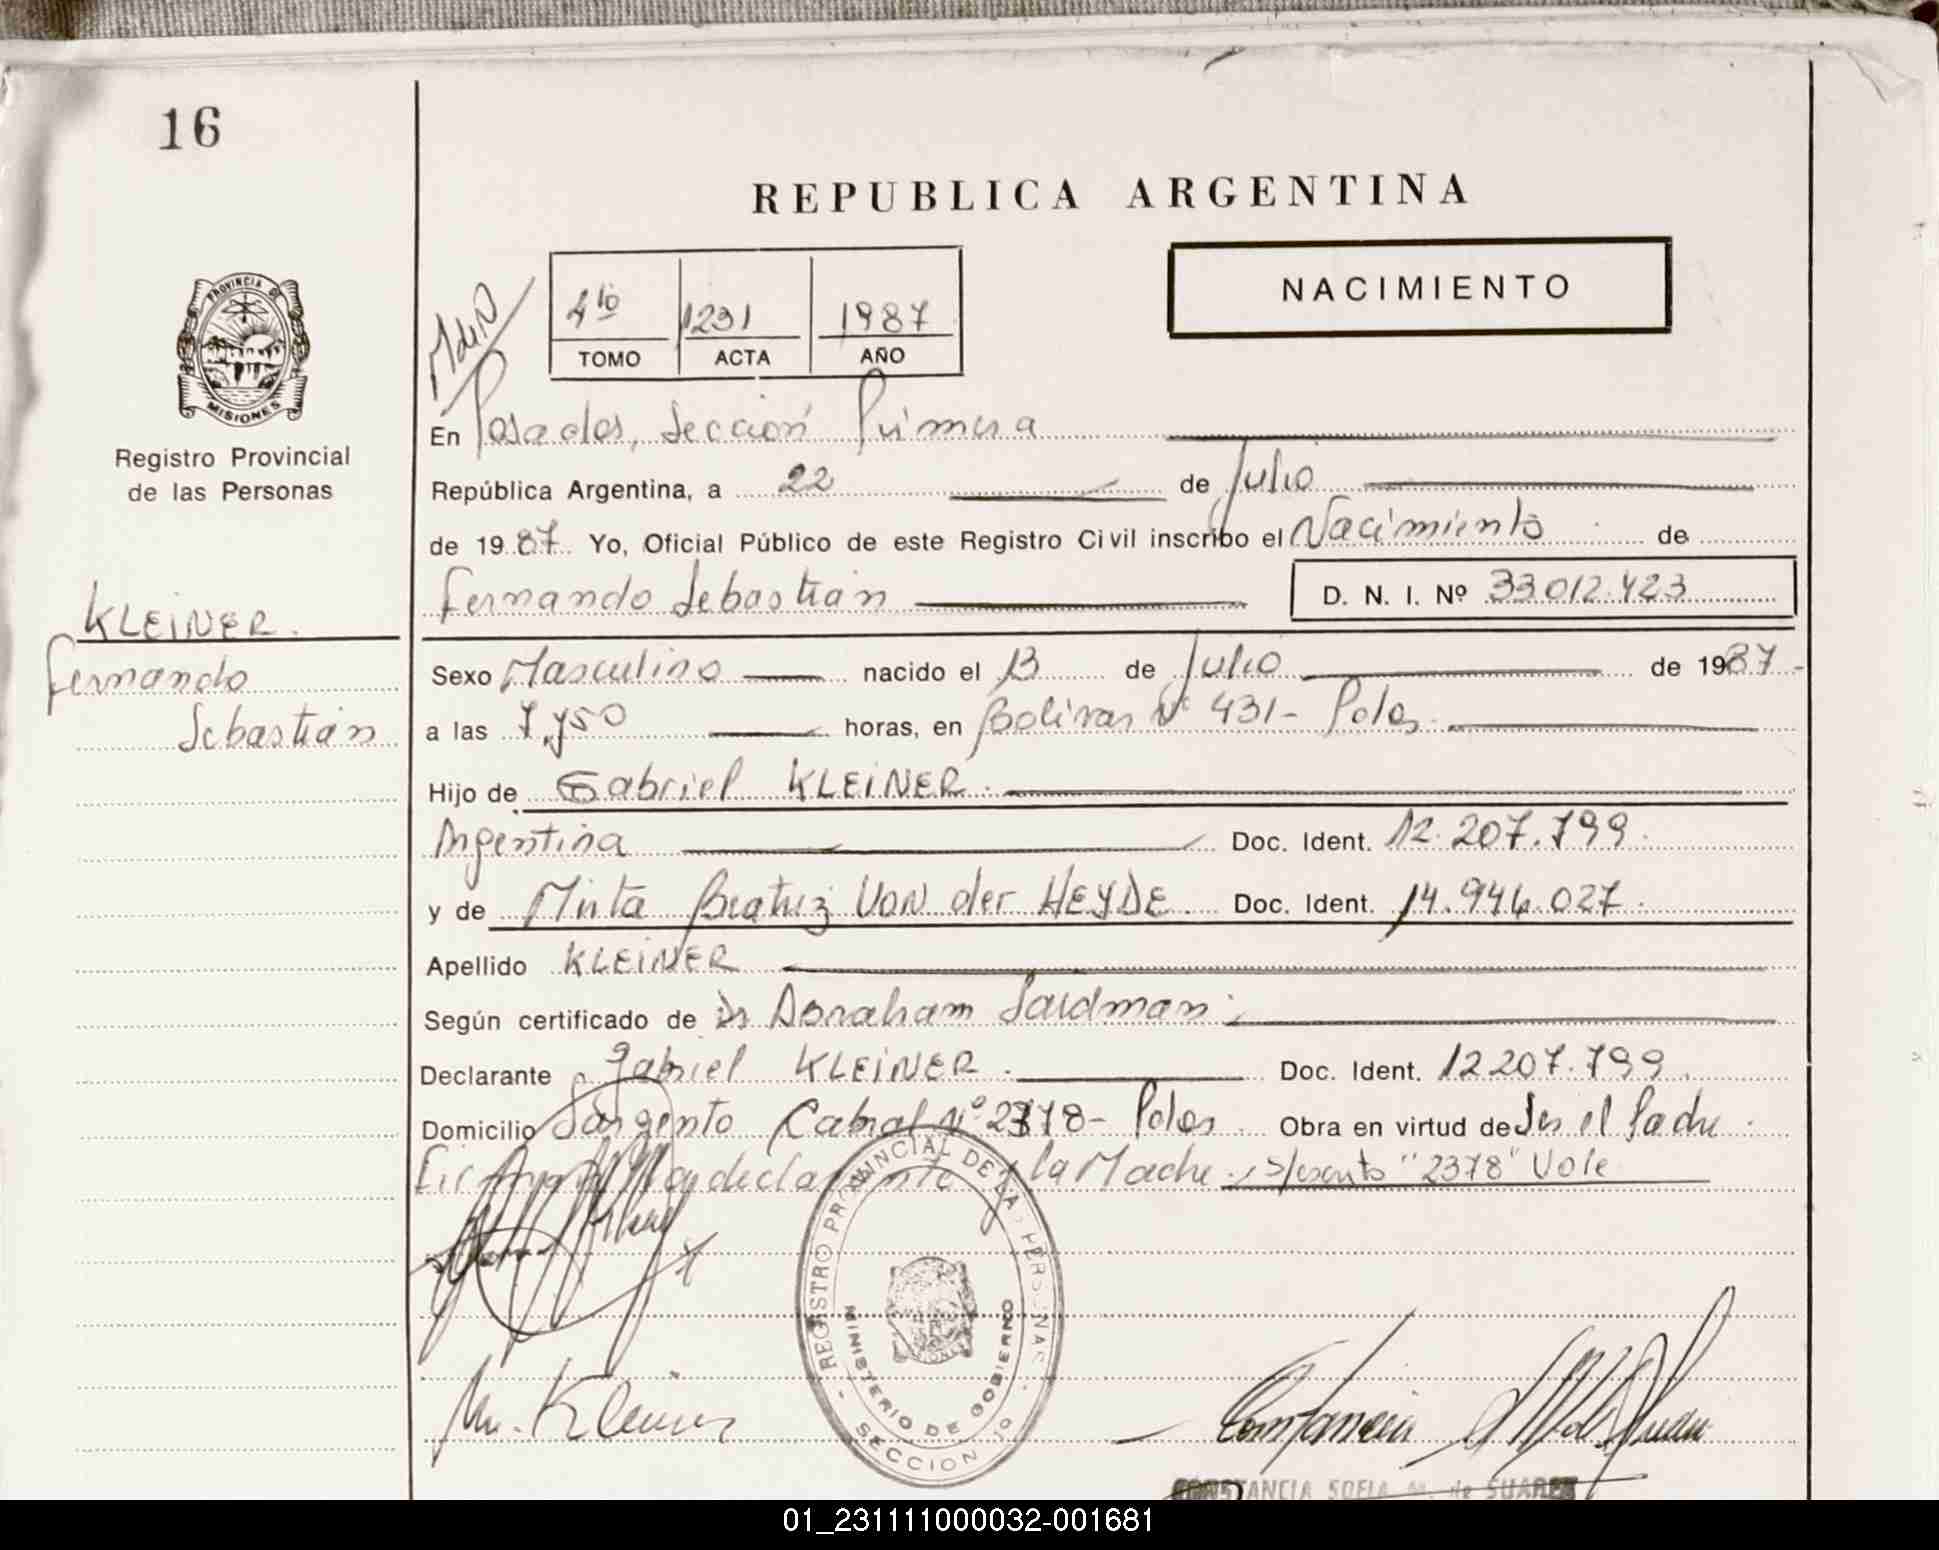 16
REPUBLICA ARGENTINA
NACIMIENTO
4to 1231 1987
TOMO ACTA AÑO
PROVINCIA DE
MISIONES
Registro Provincial
de las Personas
En Posadas, Sección Primera
República Argentina, a 22 de Julio
de 1987 Yo, Oficial Público de este Registro Civil inscribo el Nacimiento de
Fernando Sebastián D. N. I. Nº 33.012.423
KLEINER.
Fernando
Sebastián
Sexo Masculino nacido el 13 de Julio de 1987
a las 7 y 50 horas, en Bolivar Nº 431 - Pdas.
Hijo de Gabriel KLEINER.
Argentina Doc. Ident. 12.207.799.
y de Mirta Beatriz VON der HEYDE. Doc. Ident. 14.946.027.
Apellido KLEINER
Según certificado de Dr Abraham Saidman;
Declarante Gabriel KLEINER. Doc. Ident. 12.207.799.
Domicilio Sargento Cabral Nº 2378 - Pdas. Obra en virtud de Ser el Padre.
declarante y la Madre. "2378" Vale
M. Kleiner
REGISTRO PROVINCIAL DE LAS PERSONAS
MINISTERIO DE GOBIERNO
SECCION 1º
CONSTANCIA SOFIA M. de SUAREZ
01_231111000032-001681